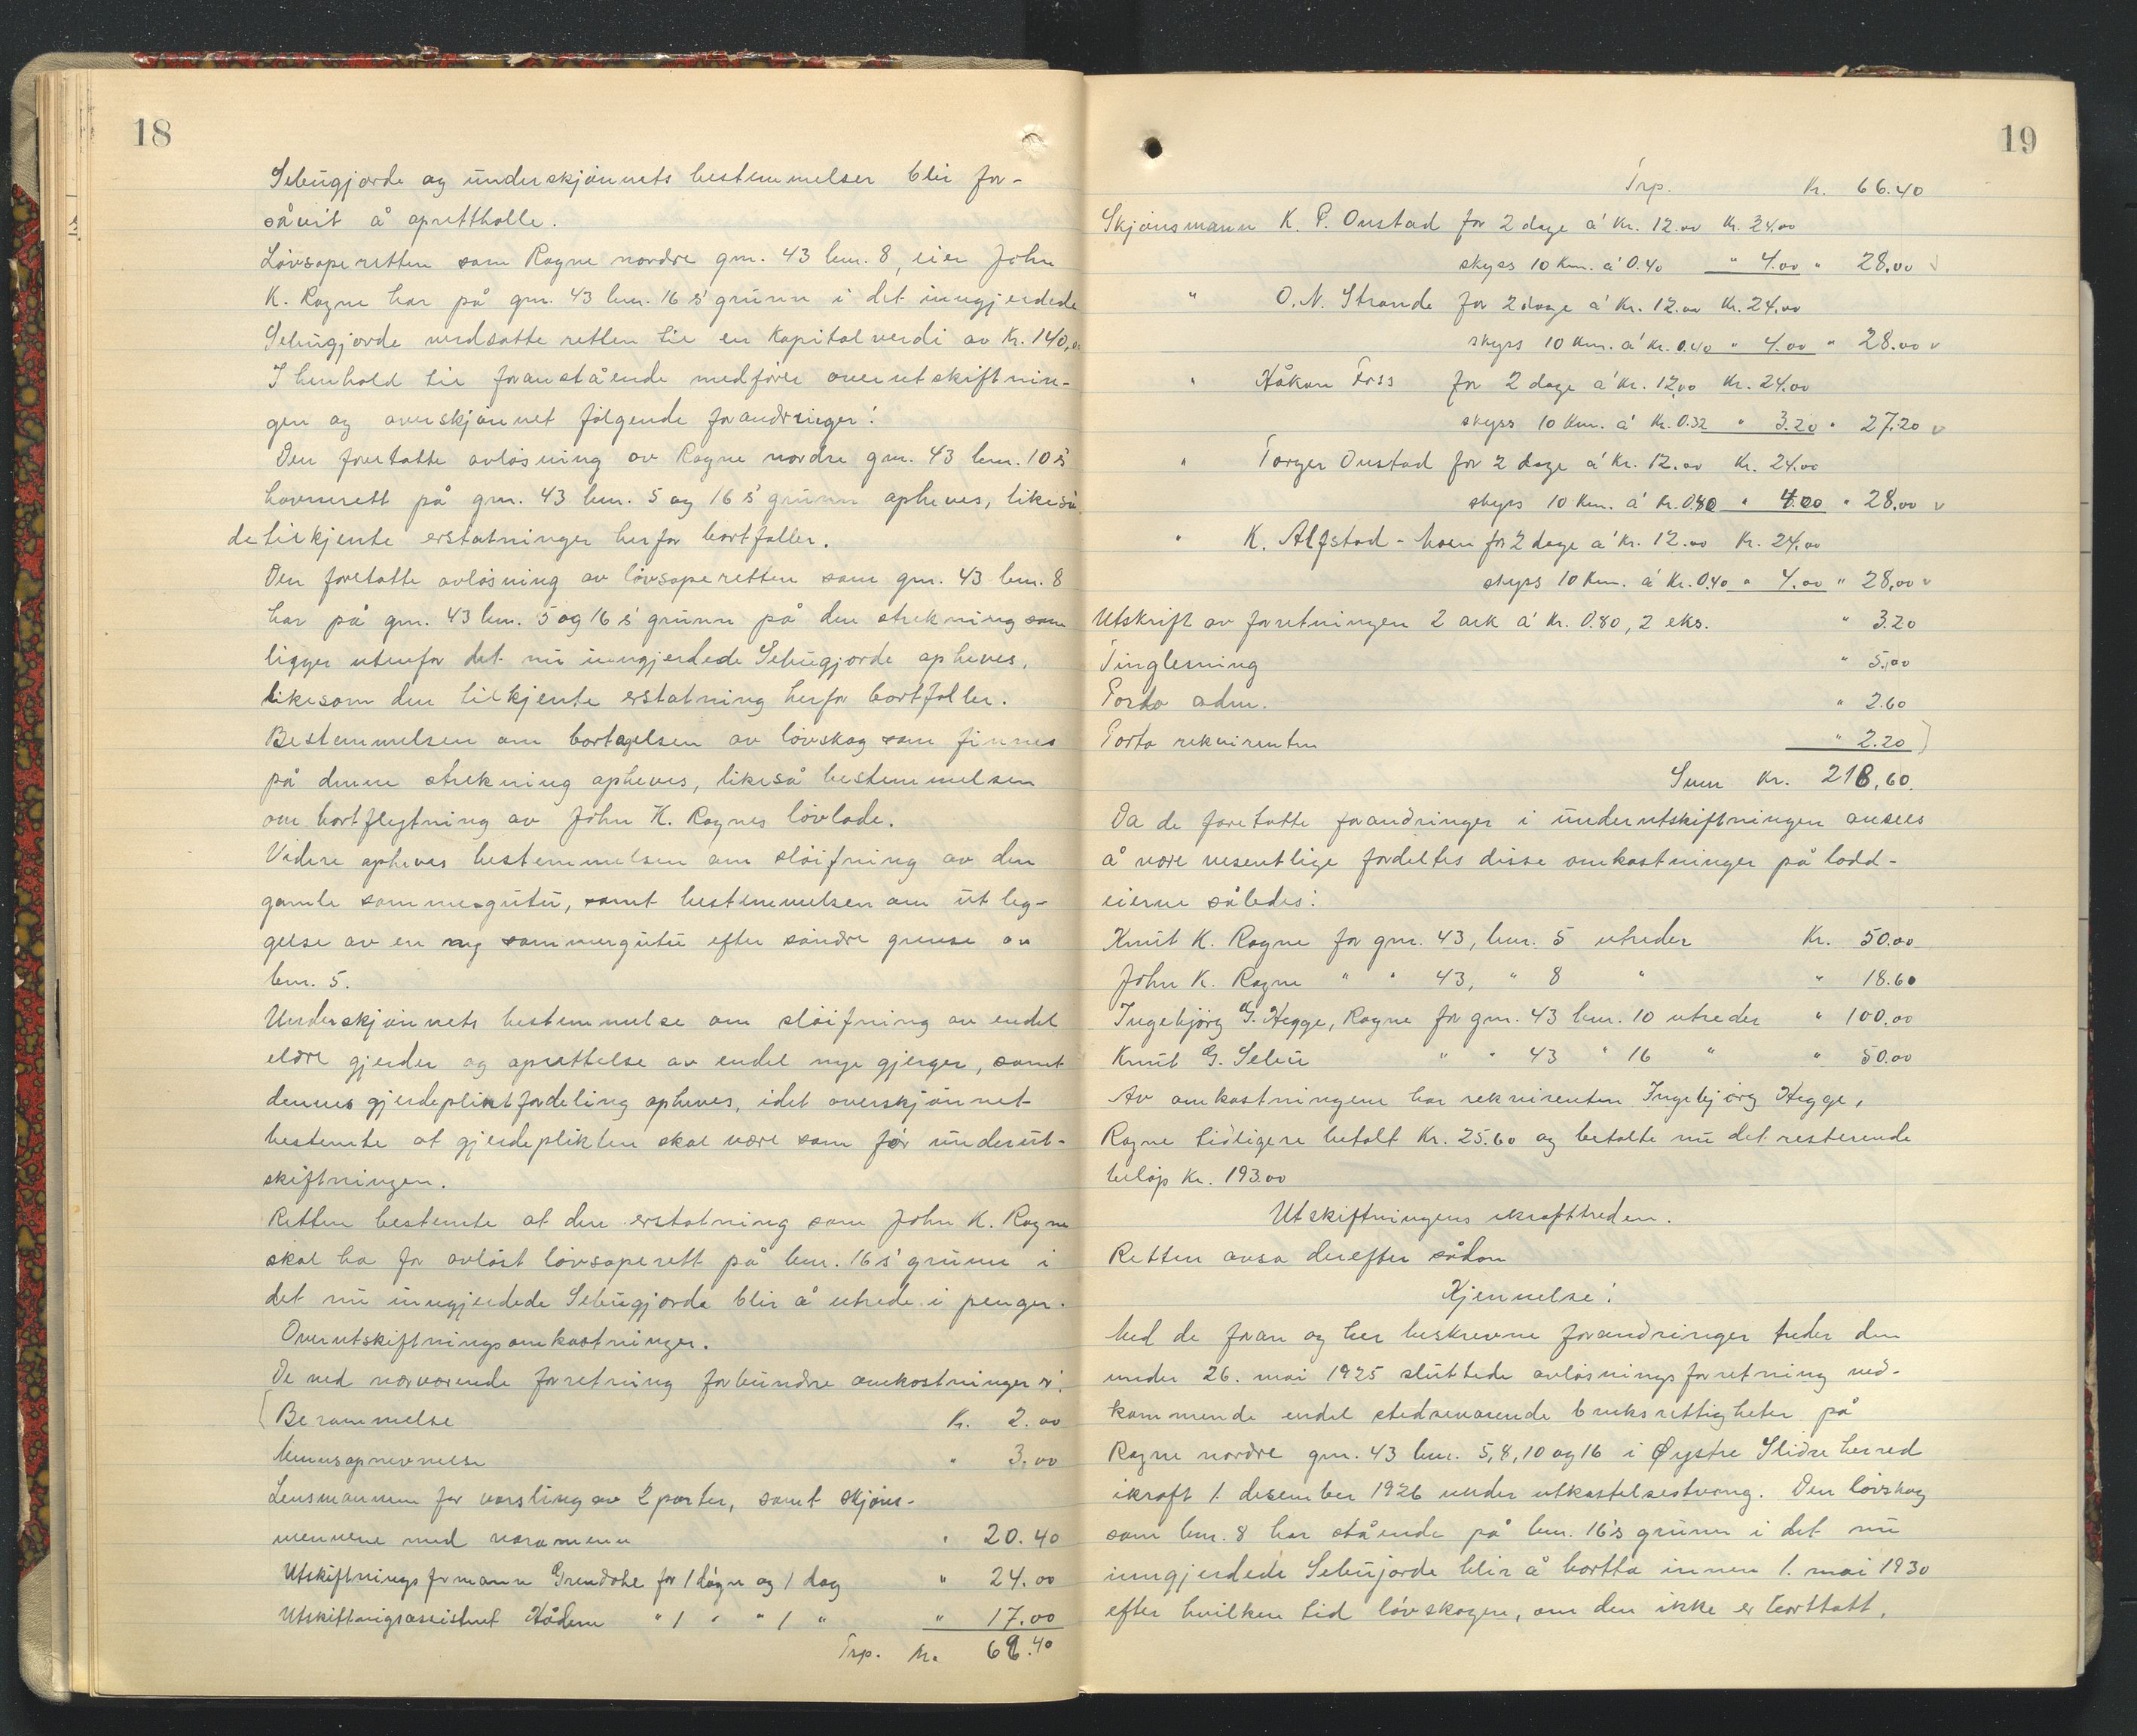 18
Sebugjorde og underskjønnets bestemmelser blir for-
såvit å oprettholle.
Løvsoperetten som Rogne nordre gnr. 43 bnr. 8, eier John
K. Rogne har på gnr. 43 bnr. 16's grunn i det inngjerdede
Sebugjorde verdsatte retten til en kapitalverdi av kr. 140,00
I henhold til foranstående medfører overutskiftnin-
gen og overskjønnet følgende forandringer:
Den foretatte avløsning av Rogne nordre gnr. 43 bnr. 10's
havnerett på gnr. 43 bnr. 5 og 16's grunn opheves, likeså
de tilkjente erstatninger herfor bortfaller.
Den foretatte avløsning av løvsoperetten som gnr. 43 bnr. 8
har på gnr. 43 bnr. 5 og 16's grunn på den strekning som
ligger utenfor det nu inngjerdede Sebugjorde opheves,
likesom den tilkjente erstatning herfor bortfaller.
Bestemmelsen om bortagelsen av løvskog som finnes
på denne strekning opheves, likeså bestemmelsen
om bortflytning av John K. Rognes løvlade.
Videre opheves bestemmelsen om sløifning av den
gamle sommergutu, samt bestemmelsen om utleg-
gelse av en ny sommergutu efter søndre grense av
bnr. 5.
Underskjønnets bestemmelse om sløifning av endel
eldre gjerder og oprettelse av endel nye gjerger, samt
dennes gjerdepliktfordeling opheves, idet overskjønnet
bestemte at gjerdeplikten skal være som før underut-
skiftningen.
Retten bestemte at den erstatning som John K. Rogne
skal ha for avløst løvsoperett på bnr. 16's grunn i
det nu inngjerdede Sebugjorde blir å utrede i penger.
Overutskiftningsomkostninger.
De ved nærværende forretning forbundne omkostninger er:
Berammelse Kr. 2.00
Mennsopnevnelse " 3.00
Lensmannen for varsling av 2 parter, samt skjøns-
mennene med varamenn " 20.40
Utskiftningsformann Grendahl for 1 døgn og 1 dag " 24.00
Utskiftningsassistent Hådem " 1 " " 1 " " 17.00
Trp. Kr. 66.40
19
Trp. Kr. 66.40
Skjønsmann K. P. Onstad for 2 dage á kr. 12.00 kr. 24.00
skyss 10 km. á 0.40 " 4.00 " 28.00
" O. N. Strande for 2 dage á kr. 12.00 kr. 24.00
skyss 10 km. á kr. 0.40 " 4.00 " 28.00
" Håkon Foss for 2 dage á kr. 12.00 kr. 24.00
skyss 10 km. á kr. 0.32 " 3.20 " 27.20
" Torger Onstad for 2 dage á kr. 12.00 kr. 24.00
skyss 10 km. á kr. 0.40 " 4.00 " 28.00
" K. Alfstad - Moen for 2 dage á kr. 12.00 kr. 24.00
skyss 10 km. á kr. 0.40 " 4.00 " 28.00
Utskrift av forretningen 2 ark á kr. 0.80, 2 eks. " 3.20
Tinglesning " 5.00
Porto adm. " 2.60
Porto rekvirenten " 2.20
Sum kr. 218,60.
Da de foretatte forandringer i underutskiftningen ansees
å være vesentlige fordeltes disse omkostninger på lodd-
eierne således:
Knut K. Rogne for gnr. 43, bnr. 5 utreder Kr. 50.00
John K. Rogne " " 43, " 8 " " 18.60
Ingebjörg G. Hegge, Rogne for gnr. 43 bnr. 10 utreder " 100.00
Knut G. Sebu " " 43 " 16 " " 50.00
Av omkostningene har rekvirenten Ingebjörg Hegge,
Rogne tidligere betalt kr. 25.60 og betalte nu det resterende
beløp kr. 193.00
Utskiftningens ikrafttreden.
Retten avsa derefter sådan
Kjennelse:
Med de foran og her beskrevne forandringer treder den
under 26. mai 1925 sluttede avløsningsforretning ved-
kommende endel stedsevarende bruksrettigheter på
Rogne nordre gnr. 43 bnr. 5, 8, 10 og 16 i Øystre Slidre herred
ikraft 1. desember 1926 under utkastelsestvang. Den løvskog
som bnr. 8 har stående på bnr. 16's grunn i det nu
inngjerdede Sebujorde blir å bortta innen 1. mai 1930
efter hvilken tid løvskogen, om den ikke er borttatt,